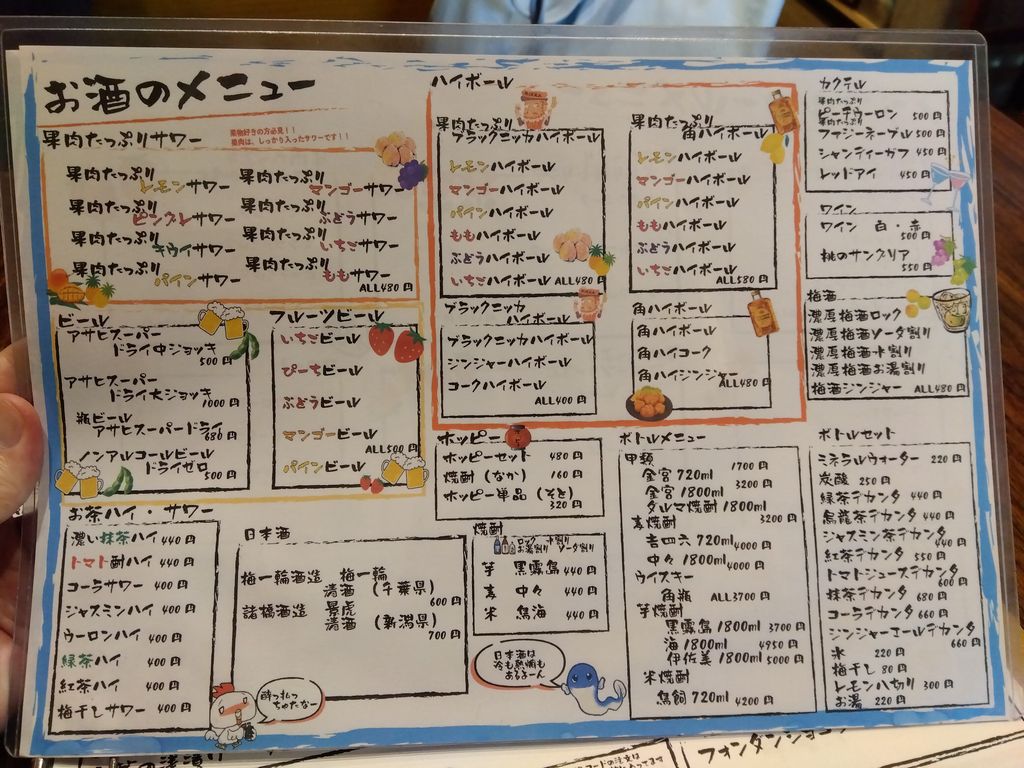 お酒のメニュー
果肉たっぷりサワー
果物好きの方必見！！
果肉は、しっかり入ったサワーです！！
果肉たっぷり
レモンサワー
果肉たっぷり
ピングレサワー
果肉たっぷり
キウイサワー
果肉たっぷり
パインサワー
果肉たっぷり
マンゴーサワー
果肉たっぷり
ぶどうサワー
果肉たっぷり
いちごサワー
果肉たっぷり
ももサワー
ALL480円
ビール
アサヒスーパー
ドライ中ジョッキ
500円
アサヒスーパー
ドライ大ジョッキ
1000円
瓶ビール
アサヒスーパードライ
680円
ノンアルコールビール
ドライゼロ
500円
フルーツビール
いちごビール
ぴーちビール
ぶどうビール
マンゴービール
ALL500円
パインビール
お茶ハイ・サワー
濃い抹茶ハイ 440円
トマト酎ハイ 440円
コーラサワー 400円
ジャスミンハイ 400円
ウーロンハイ 400円
緑茶ハイ 400円
紅茶ハイ 400円
梅干しサワー 400円
日本酒
梅一輪酒造 梅一輪
清酒（千葉県）
600円
諸橋酒造 景虎
清酒（新潟県）
700円
酔っ払っ
ちゃたなー
ハイボール
果肉たっぷり
ブラックニッカハイボール
レモンハイボール
マンゴーハイボール
パインハイボール
ももハイボール
ぶどうハイボール
いちごハイボール
ALL480円
果肉たっぷり
角ハイボール
レモンハイボール
マンゴーハイボール
パインハイボール
ももハイボール
ぶどうハイボール
いちごハイボール
ALL580円
ブラックニッカ
ハイボール
ブラックニッカハイボール
ジンジャーハイボール
コークハイボール
ALL400円
角ハイボール
角ハイボール
角ハイコーク
角ハイジンジャー
ALL480円
ホッピー
ホッピーセット 480円
焼酎（なか） 160円
ホッピー単品（そと）
320円
焼酎
ロック 水割り
お湯割り ソーダ割り
芋 黒霧島 440円
麦 中々 440円
米 鳥海 440円
日本酒は
冷も熱燗も
あるるーん
カクテル
果肉たっぷり
ピーチウーロン 500円
果肉たっぷり
ファジーネーブル 500円
シャンディーガフ 450円
レッドアイ 450円
ワイン
ワイン 白・赤
500円
桃のサングリア
550円
梅酒
濃厚梅酒ロック
濃厚梅酒ソーダ割り
濃厚梅酒水割り
濃厚梅酒お湯割り
梅酒ジンジャー ALL480円
ボトルメニュー
甲類
金宮 720ml 1700円
金宮 1800ml 3200円
ダルマ焼酎 1800ml
3200円
麦焼酎
吉四六 720ml 4000円
中々 1800ml 4000円
ウイスキー
角瓶 ALL3700円
芋焼酎
黒霧島 1800ml 3700円
海 1800ml 4950円
伊佐美 1800ml 5000円
米焼酎
鳥飼 720ml 4200円
ボトルセット
ミネラルウォーター 220円
炭酸 250円
緑茶デカンタ 440円
烏龍茶デカンタ 440円
ジャスミン茶デカンタ
440円
紅茶デカンタ 550円
トマトジュースデカンタ
600円
抹茶デカンタ 680円
コーラデカンタ 660円
ジンジャーエールデカンタ
660円
氷 220円
梅干し 80円
レモン八切り 300円
お湯 220円